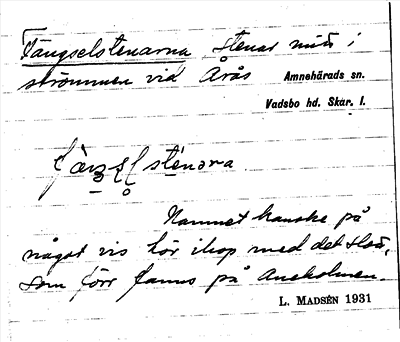 Fängselstenarna, stenar mitt i
strömmen vid Årås Amnehärads sn.
Vadsbo hd. Skar. l.
sténara
Namnet kanske på
något vis hör ihop med det slott,
som förr fanns på Aneholmen.
L. MADSÉN 1931